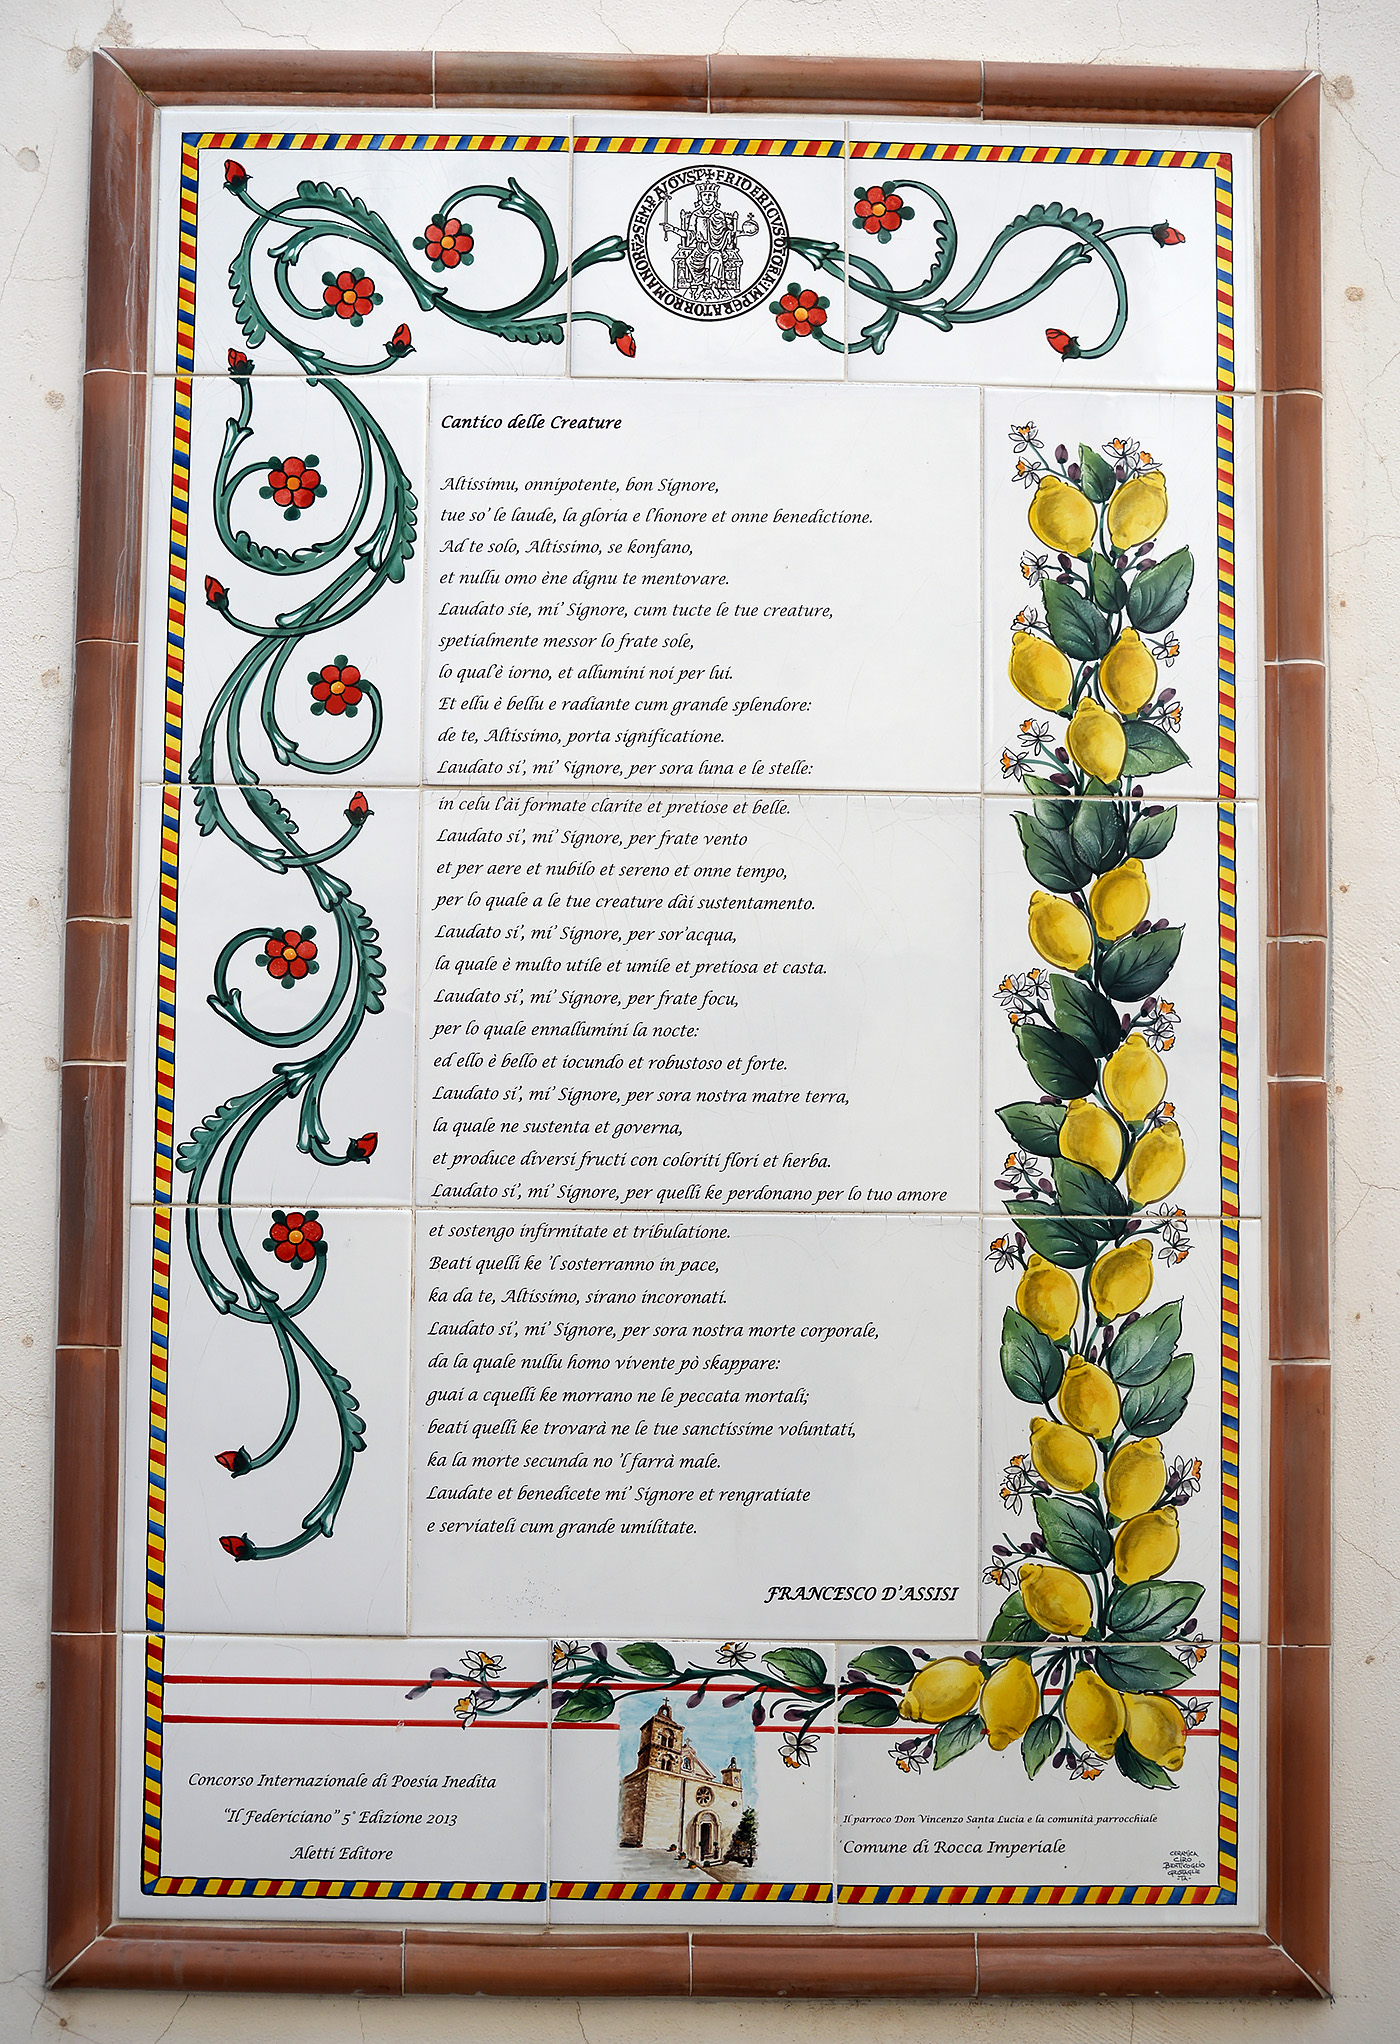 ROMANORA SEMP AVGVST FRIDERICVS IMPERATOR
Cantico delle Creature
Altissimu, onnipotente, bon Signore,
tue so' le laude, la gloria e l'honore et onne benedictione.
Ad te solo, Altissimo, se konfano,
et nullu omo ène dignu te mentovare.
Laudato sie, mi' Signore, cum tucte le tue creature,
spetialmente messor lo frate sole,
lo qual'è iorno, et allumini noi per lui.
Et ellu è bellu e radiante cum grande splendore:
de te, Altissimo, porta significatione.
Laudato si', mi' Signore, per sora luna e le stelle:
in celu l'ài formate clarite et pretiose et belle.
Laudato si', mi' Signore, per frate vento
et per aere et nubilo et sereno et onne tempo,
per lo quale a le tue creature dài sustentamento.
Laudato si', mi' Signore, per sor'acqua,
la quale è multo utile et umile et pretiosa et casta.
Laudato si', mi' Signore, per frate focu,
per lo quale ennallumini la nocte:
ed ello è bello et iocundo et robustoso et forte.
Laudato si', mi' Signore, per sora nostra matre terra,
la quale ne sustenta et governa,
et produce diversi fructi con coloriti flori et herba.
Laudato si', mi' Signore, per quelli ke perdonano per lo tuo amore
et sostengo infirmitate et tribulatione.
Beati quelli ke 'l sosterranno in pace,
ka da te, Altissimo, sirano incoronati.
Laudato si', mi' Signore, per sora nostra morte corporale,
da la quale nullu homo vivente pò skappare:
guai a cquelli ke morrano ne le peccata mortali;
beati quelli ke trovarà ne le tue sanctissime voluntati,
ka la morte secunda no 'l farrà male.
Laudate et benedicete mi' Signore et rengratiate
e serviateli cum grande umilitate.
FRANCESCO D'ASSISI
Concorso Internazionale di Poesia Inedita
"Il Federiciano" 5° Edizione 2013
Aletti Editore
Il parroco Don Vincenzo Santa Lucia e la comunità parrocchiale
Comune di Rocca Imperiale
CERAMICA
CIRO
BENTIVOGLIO
GROTTAGLIE
-TA-